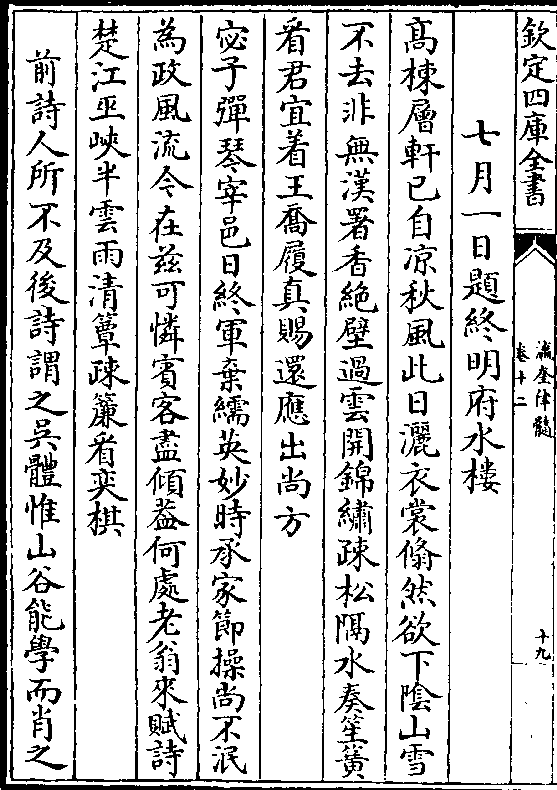 欽定四庫全書
瀛奎律髓
卷十二
十九
七月一日題終明府水樓
高棟層軒已自凉秋風此日灑衣裳翛然欲下陰山雪
不去非無漢署香絶壁過雲開錦繡疎松隔水奏笙簧
看君宜着王喬履真賜還應出尚方
宓子彈琴宰邑日終軍棄繻英妙時承家節操尚不泯
為政風流今在兹可憐賓客盡傾葢何處老翁來賦詩
楚江巫峽半雲雨清簟疎簾看奕棋
前詩人所不及後詩謂之吳體惟山谷能學而肖之